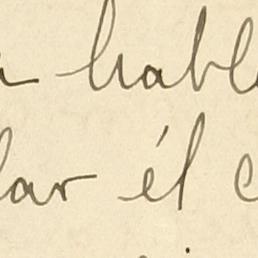 habl
lar él c